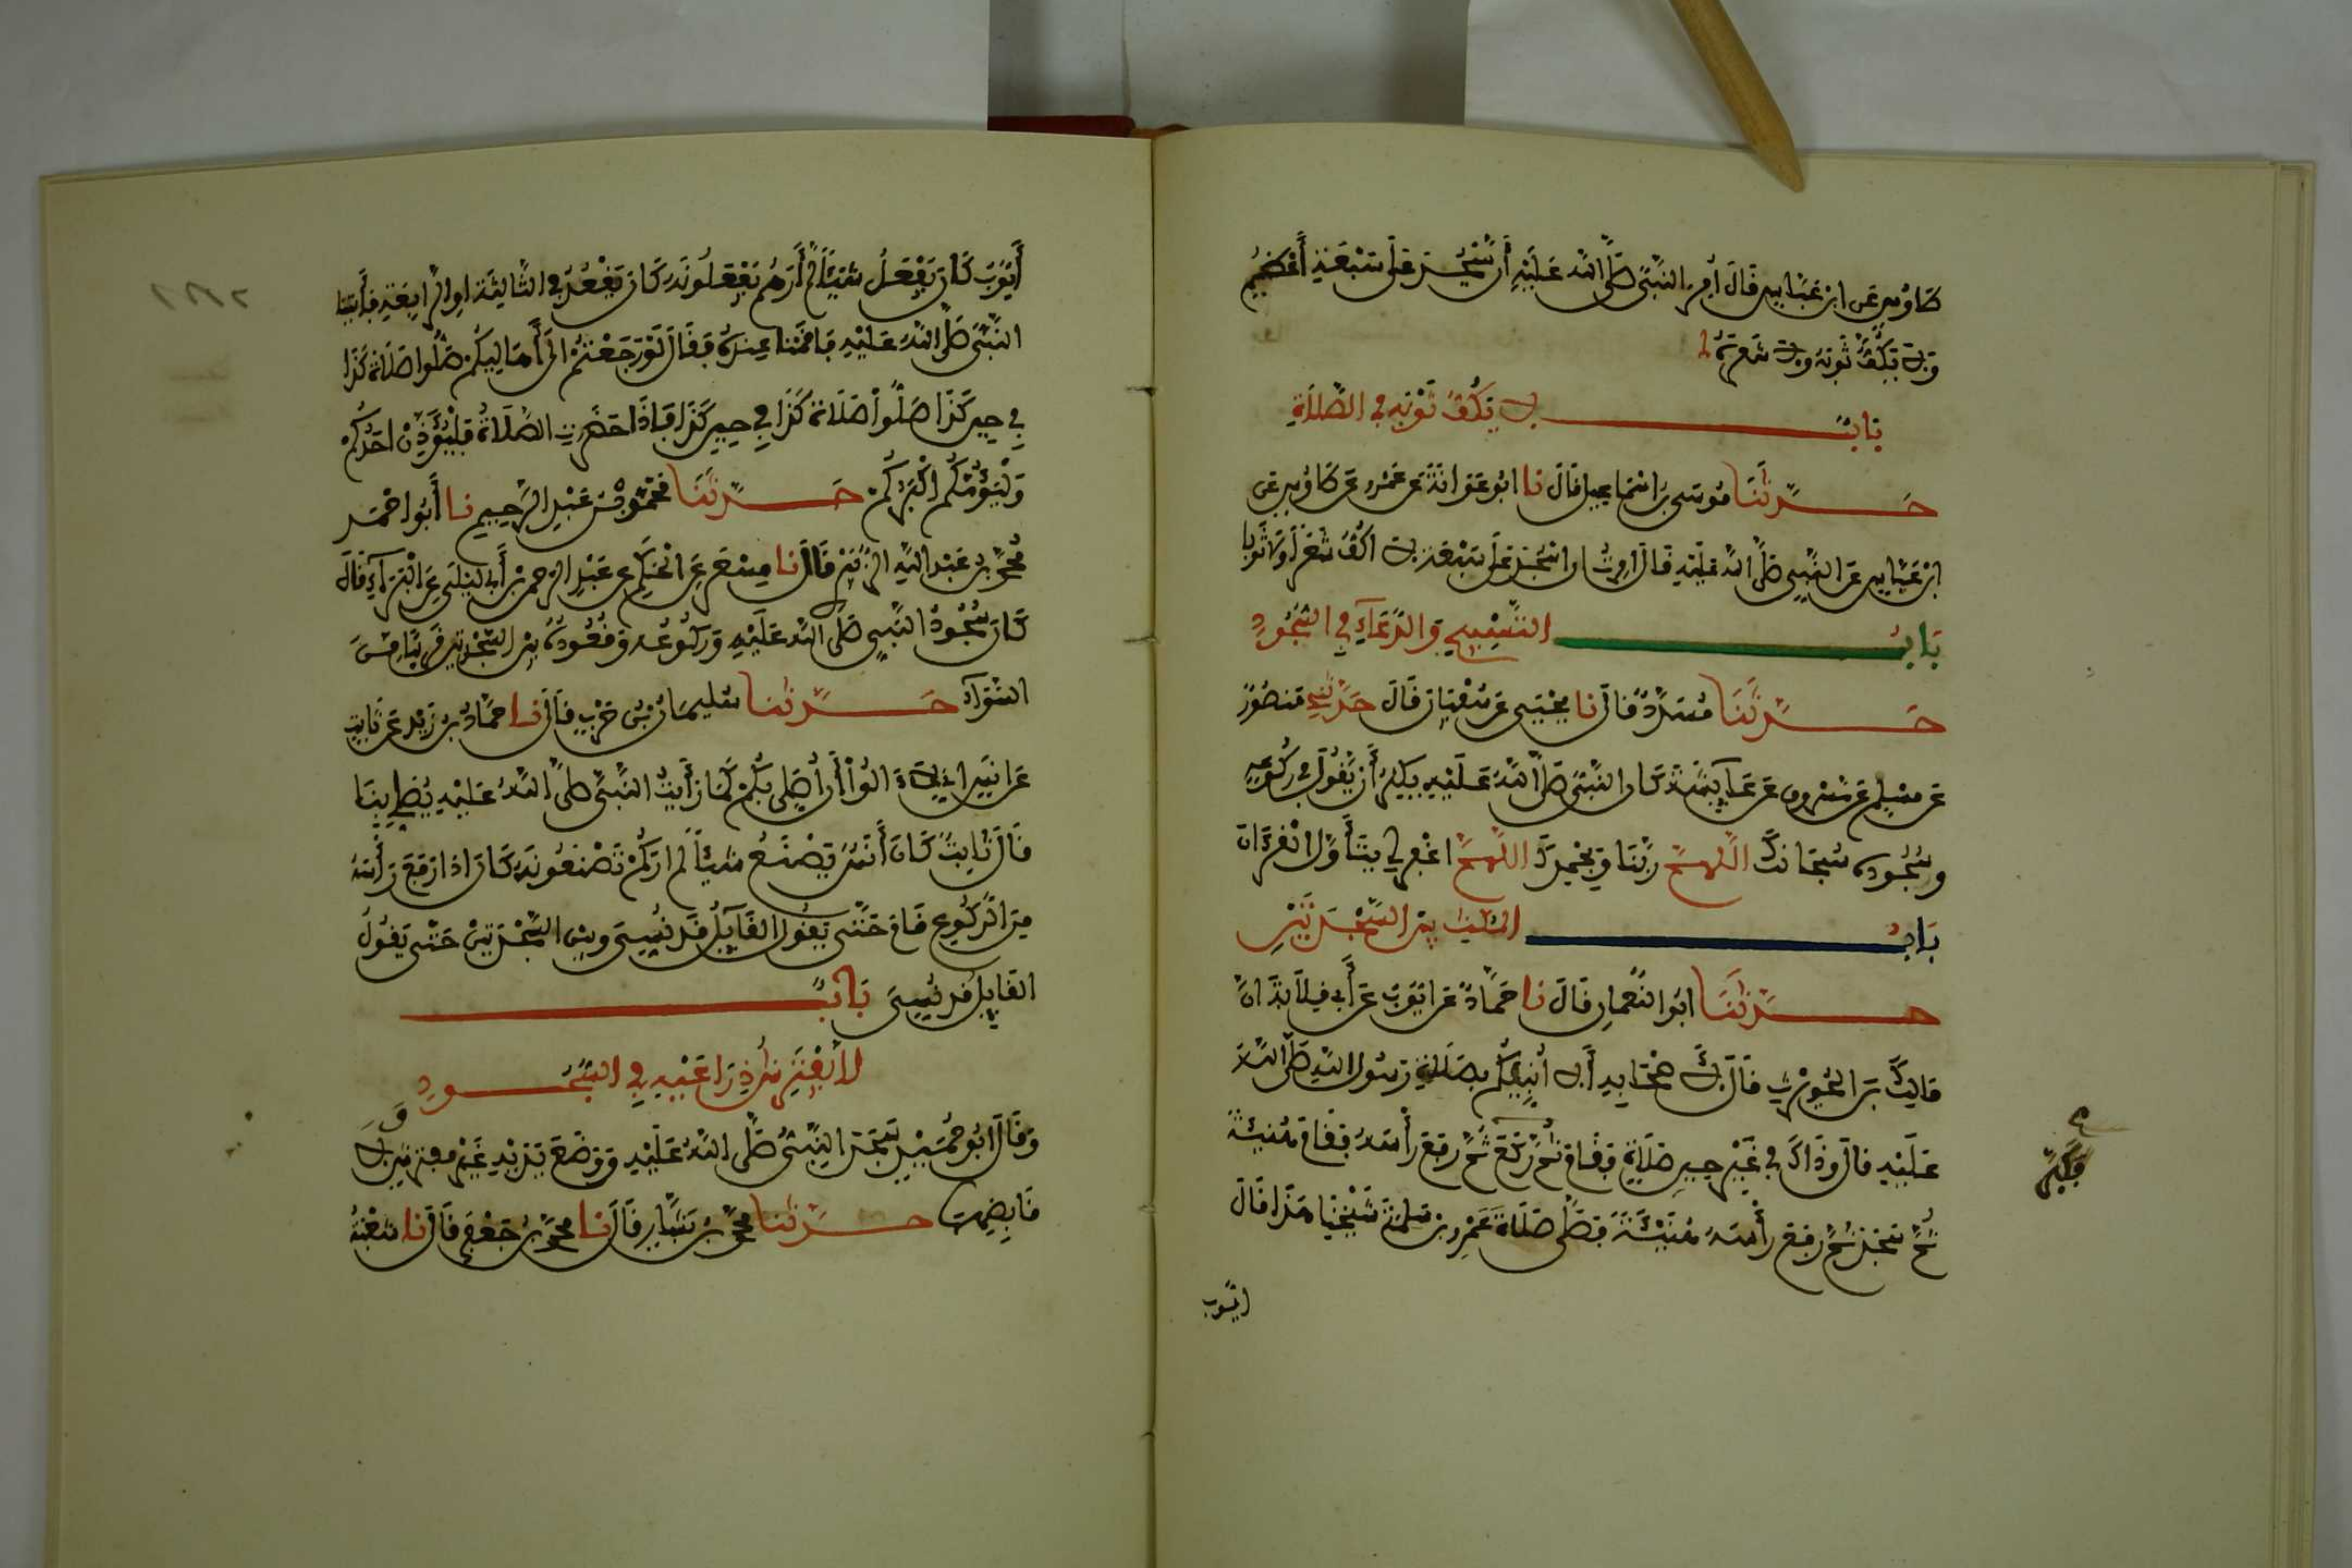 طَاوُسٍ عَنِ ابْنِ عَبَّاسٍ قَالَ أُمِرَ النَّبِيُّ صَلَّى اللهُ عَلَيْهِ أَنْ يَسْجُدَ عَلَى سَبْعَةِ أَعْظُمٍ
وَلَا يَكُفَّ ثَوْبَهُ وَلَا شَعَرَهُ
بَابٌ لَا يَكُفُّ ثَوْبَهُ فِي الصَّلَاةِ
حَدَّثَنَا مُوسَى بْنُ إِسْمَاعِيلَ قَالَ نَا أَبُو عَوَانَةَ عَنْ عَمْرٍو عَنْ طَاوُسٍ عَنِ
ابْنِ عَبَّاسٍ عَنِ النَّبِيِّ صَلَّى اللهُ عَلَيْهِ قَالَ أُمِرْتُ أَنْ أَسْجُدَ عَلَى سَبْعَةٍ لَا أَكُفُّ شَعَرًا وَلَا ثَوْبًا
بَابُ التَّسْبِيحِ وَالدُّعَاءِ فِي السُّجُودِ
حَدَّثَنَا مُسَدَّدٌ قَالَ نَا يَحْيَى عَنْ سُفْيَانَ قَالَ حَدَّثَنِي مَنْصُورٌ
عَنْ مُسْلِمٍ عَنْ مَسْرُوقٍ عَنْ عَائِشَةَ كَانَ النَّبِيُّ صَلَّى اللهُ عَلَيْهِ يُكْثِرُ أَنْ يَقُولَ فِي رُكُوعِهِ
وَسُجُودِهِ سُبْحَانَكَ اللَّهُمَّ رَبَّنَا وَبِحَمْدِكَ اللَّهُمَّ اغْفِرْ لِي يَتَأَوَّلُ الْقُرْءَانَ
بَابُ الْمُكْثِ بَيْنَ السَّجْدَتَيْنِ
حَدَّثَنَا أَبُو النُّعْمَانِ قَالَ نَا حَمَّادٌ عَنْ أَيُّوبَ عَنْ أَبِي قِلَابَةَ أَنَّ
مَالِكَ بْنَ الْحُوَيْرِثِ قَالَ لِأَصْحَابِهِ أَلَا أُنَبِّئُكُمْ بِصَلَاةِ رَسُولِ اللهِ صَلَّى اللهُ
عَلَيْهِ قَالَ وَذَاكَ فِي غَيْرِ حِينِ صَلَاةٍ فَقَامَ ثُمَّ رَكَعَ ثُمَّ رَفَعَ رَأْسَهُ فَقَامَ هُنَيَّةً
فَكَبَّرَ
ثُمَّ سَجَدَ ثُمَّ رَفَعَ رَأْسَهُ هُنَيَّةً فَصَلَّى صَلَاةَ عَمْرِو بْنِ سَلِمَةَ شَيْخِنَا هَذَا قَالَ
أيوب
أَيُّوبُ كَانَ يَفْعَلُ شَيْئًا لَمْ أَرَهُمْ يَفْعَلُونَهُ كَانَ يَقْعُدُ فِي الثَّالِثَةِ أَوِ الرَّابِعَةِ فَأَتَيْنَا
النَّبِيَّ صَلَّى اللهُ عَلَيْهِ فَأَقَمْنَا عِنْدَهُ فَقَالَ لَوْ رَجَعْتُمْ إِلَى أَهَالِيكُمْ صَلُّوا صَلَاةَ كَذَا
فِي حِينِ كَذَا صَلُّوا صَلَاةَ كَذَا فِي حِينِ كَذَا فَإِذَا حَضَرَتِ الصَّلَاةُ فَلْيُؤَذِّنْ أَحَدُكُمْ
وَلْيَؤُمَّكُمْ أَكْبَرُكُمْ حَدَّثَنَا مُحَمَّدُ بْنُ عَبْدِ الرَّحِيمِ نَا أَبُو أَحْمَدَ
مُحَمَّدُ بْنُ عَبْدِ اللهِ الزُّبَيْرِيُّ قَالَ نَا مِسْعَرٌ عَنِ الْحَكَمِ عَنْ عَبْدِ الرَّحْمَنِ بْنِ أَبِي لَيْلَى عَنِ الْبَرَاءِ قَالَ
كَانَ سُجُودُ النَّبِيِّ صَلَّى اللهُ عَلَيْهِ وَرُكُوعُهُ وَقُعُودُهُ بَيْنَ السَّجْدَتَيْنِ قَرِيبًا مِنَ
السَّوَاءِ حَدَّثَنَا سُلَيْمَانُ بْنُ حَرْبٍ قَالَ نَا حَمَّادُ بْنُ زَيْدٍ عَنْ ثَابِتٍ
عَنْ أَنَسٍ إِنِّي لَا ءَالُوا أَنْ أُصَلِّيَ بِكُمْ كَمَا رَأَيْتُ النَّبِيَّ صَلَّى اللهُ عَلَيْهِ يُصَلِّي بِنَا
قَالَ ثَابِتٌ كَانَ أَنَسٌ يَصْنَعُ شَيْئًا لَمْ أَرَكُمْ تَصْنَعُونَهُ كَانَ إِذَا رَفَعَ رَأْسَهُ
مِنَ الرُّكُوعِ قَامَ حَتَّى يَقُولَ الْقَائِلُ قَدْ نَسِيَ وَبَيْنَ السَّجْدَتَيْنِ حَتَّى يَقُولَ
الْقَائِلُ قَدْ نَسِيَ بَابٌ
لَا يَفْتَرِشُ ذِرَاعَيْهِ فِي السُّجُودِ
وَقَالَ أَبُو حُمَيْدٍ سَجَدَ النَّبِيُّ صَلَّى اللهُ عَلَيْهِ وَوَضَعَ يَدَيْهِ غَيْرَ مُفْتَرِشٍ وَلَا
قَابِضِهِمَا حَدَّثَنَا مُحَمَّدُ بْنُ بَشَّارٍ قَالَ نَا مُحَمَّدُ بْنُ جَعْفَرٍ قَالَ نَا شُعْبَةُ